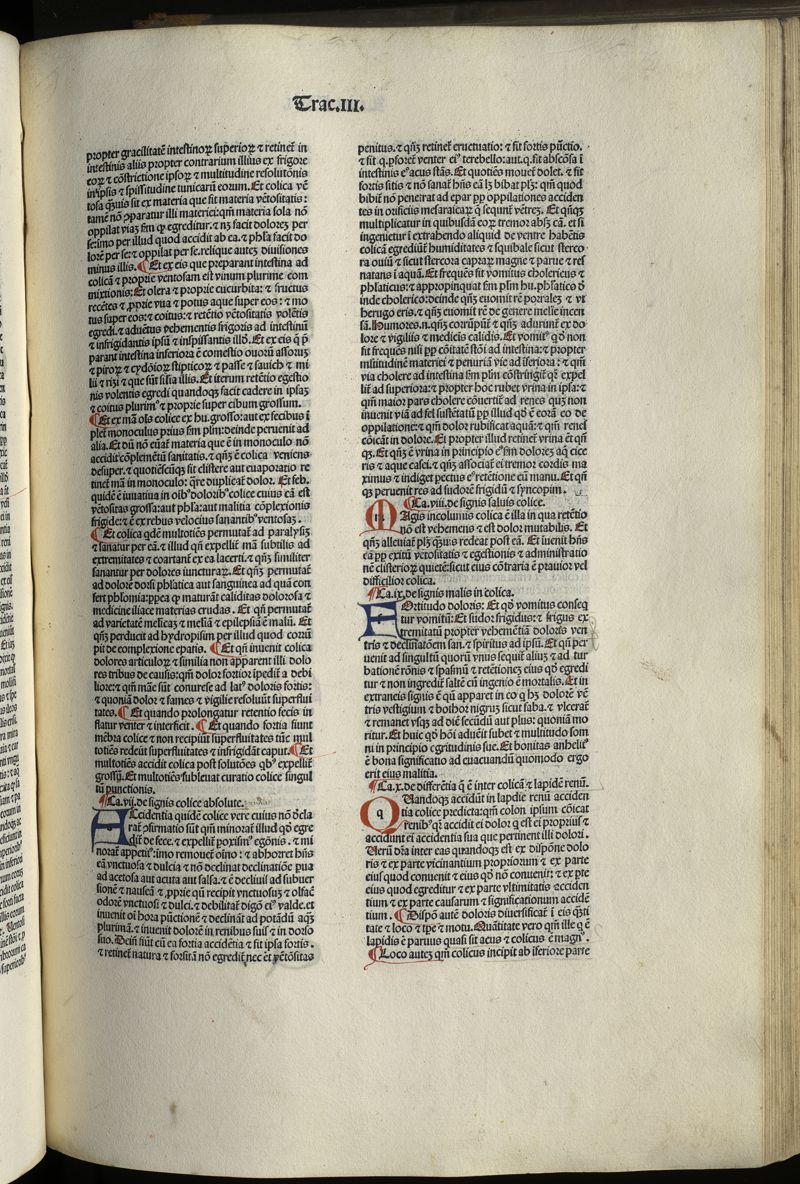 Trac.III.
propter gracilitatē intestinoꝝ superioꝝ ⁊ retinet̄ in
intestinis aliis propter contrarium illius ex frigore
eoꝝ ⁊ cōstrictione ipsoꝝ ⁊ multitudine resolutōnis
in ipsis ⁊ spissitudine tunicarū eorum. Et colica vē
tosa q̄uis sit ex materia que sit materia vētositatis:
tamē nō ꝯparatur illi materiei: qm̄ materia sola nō
oppilat viaꝫ
lorē per se: ⁊ oppilat per se. relique auteꝫ diuisiones
minus illis. ¶ Et ex eis que preparant intestina ad
colicā ⁊ proprie ventosam est vinum plurime com
mixtionis: Et olera ⁊ proprie cucurbita: ⁊ fructus
recētes ⁊ ꝓprie vua ⁊ potus aque super eos: ⁊ mo
tus super eos: ⁊ coitus: ⁊ retētio vētositatis volētis
egredi. ⁊ aduētus vehementis frigoris ad intestinū
⁊ infrigidantis ipsū ⁊ inspissantis illd̄. Et ex eis q̄ p̄
parant intestina inferiora ē comestio ouorū assoruꝫ
⁊ piroꝝ ⁊ cydōioꝝ stipticoꝝ ⁊ passe ⁊ sauich ⁊ mi
lii ⁊ rizi ⁊ que sūt silia illis. Et iterum retētio egestio
nis volentis egredi quandoqꝫ facit cadere in ipsaꝫ
⁊ coitus plurimꝰ ⁊ proprie super cibum grossum.
¶ Et ex mā ols colice ex hu. grosso: aut ex fecibus ī
plet̄ monoculus prius scm̄ plm: deinde peruenit ad
alia. Et dū nō euat̄ materia que ē in monoculo nō
accidit cōplemētū sanitatis. ⁊ qn̄qꝫ ē colica veniens
desuper. ⁊ quotiēscūqꝫ fit clistere aut euaporatio re
tinet̄ mā in monoculo: q̄re duplicat̄ dolor. Et feb.
quidē ē iuuatiua in oībꝰ dolorībꝰ colice cuius cā est
vētositas grossa: aut phl̄a: aut malitia cōplexionis
frigide: ⁊ ē ex rebus velocius sanantibꝰ ventosaꝫ.
¶ Et colica qdē multotiēs permutat̄ ad paralysiꝫ
⁊ sanatur per eā. ⁊ illud qn̄ expellit̄ mā subtilis ad
extremitates ⁊ coartant̄ ex ea lacerti. ⁊ qn̄qꝫ similiter
sanantur per dolores iuncturaꝝ. Et qn̄qꝫ permutat̄
ad dolorē dorsi phl̄atica aut sanguinea ad quā con
fert phl̄omia: ꝓpea qꝫ maturāt caliditas dolorosa ⁊
medicine iliace materias erudas. Et qn̄ permutat̄
ad varietatē melicaꝫ ⁊ meliā ⁊ epilepsiā ē malū. Et
qn̄qꝫ perducit ad hydropisim per illud quod corrū
pit de complexione epatis. ¶ Et qn̄ inuenit colica
dolores articuloꝝ ⁊ similia non apparent illi dolo
res tribus de causis: qm̄ dolor fortior īpedit a debi
liore: ⁊ qm̄ māe sūt conuerse ad latꝰ doloris fortis:
⁊ quoniā dolor ⁊ fames ⁊ vigilie resoluūt superflui
tates. ¶ Et quando prolongatur retentio fecis in
flatur venter ⁊ interficit. ¶ Et quando fortia siunt
mēbra colice ⁊ non recipiūt superfluitatem tūc mul
totiēs redeūt superfluitates ⁊ infrigidāt caput. ¶ Et
multotiēs accidit colica post solutōes qbꝰ expellit̄
grossū. Et multotiēs subleuat curatio colice singul
tū punctionis.
¶ Ca. vij. de signis colice absolute.
Accidentia quidē colice vere cuius nō d̄cla
rat̄ ꝓfirmatio sūt qn̄ minorat̄ illud qd̄ egre
dit̄ de fece. ⁊ expellit̄ poximꝰ egōnis. ⁊ mi
norat̄ appetitꝰ: imo remouet̄ oīno: ⁊ abhorret hn̄s
eā vnctuosa ⁊ dulcia ⁊ nō declinat declinatiōe pua
ad acetosa aut acuta aut salsa. ⁊ ē decliuis ad subuer
sionē ⁊ nauseā ⁊ ꝓprie qn̄ recipit vnctuosuꝫ ⁊ olfac̄
odorē vnctuosi ⁊ dulci. ⁊ debilitat̄ digō eiꝰ valde. et
inuenit oī hora pūctionē ⁊ declinat̄ ad potādū aqꝫ
plurimā. ⁊ inuenit dolorē in renibus suis ⁊ in dorso
suo. Dein̄ fiūt eū ea fortia accidētia ⁊ fit ipsa fortis.
⁊ retinet̄ natura ⁊ forsitā nō egredit̄ nec et̄ vētositas
penitus. ⁊ qn̄qꝫ retinet̄ eructuatio: ⁊ fit fortis pūctio.
⁊ fit q. ꝑforet̄ venter eiꝰ terebello: aut. q. sit abscōsa ī
intestinis eꝰ acus stās. Et quotiēs mouet̄ dolet. ⁊ fit
fortis sitis ⁊ nō sanat̄ hn̄s eā lꝫ bibat plꝫ: qm̄ quod
bibit̄ nō penetrat ad epar pp oppilationes acciden
tes in orificiis mesaraicaꝝ q̄ sequnt̄ vētreꝫ. Et qn̄qꝫ
multiplicatur in quibusdā eoꝝ tremor absqꝫ cā. et si
ingenietur ī extrahendo aliquid de ventre habētis
colicā egrediūt̄ humiditates ⁊ squibale sicut sterco
ra ouiū ⁊ sicut stercora capraꝝ magne ⁊ parue ⁊ res
natans ī aquā. Et frequēs fit vomitus cholericus ⁊
phl̄aticus: ⁊ appropinquat scm̄ plm hu. phl̄atico d̄
inde cholerico: deinde qn̄qꝫ euomit rē porralēꝫ ⁊ vt
herugo eris. ⁊ qn̄qꝫ euomit rē de genere melle incen
sā. Humores. n. qn̄qꝫ corrūpūt̄ ⁊ qn̄qꝫ adurunt̄ ex do
lore ⁊ vigiliis ⁊ medicīs calidis. Et vomitꝰ qd̄ non
fit frequēs nisi pp cōitatē stōi ad intestina: ⁊ propter
mltitudinē materiei ⁊ penuriā vie ad īferiora: ⁊ qm̄
via cholere ad intestina scm̄ plm cōstrīgit̄ q̄re expel
lit̄ ad superiora: ⁊ propter hoc rubet vrina in ipsa: ⁊
qm̄ maior pars cholere cōuertit̄ ad renes quꝫ non
inuenit viā ad fel sustētatū pp illud qd̄ ē eorā eo de
oppilatione: ⁊ qm̄ dolor rubificat aquā: ⁊ qm̄ renes
cōicāt in dolore. Et propter illud retinet̄ vrina et̄ qn̄
qꝫ. Et qn̄qꝫ ē vrina in principio eꝰ scm̄ dolorꝫ aq̄ cice
ris ⁊ aque casei. ⁊ qn̄qꝫ associat̄ ei tremor cordis ma
ximus ⁊ indiget pectus eꝰ retētione cū manu. Et qn̄
qꝫ peruenit res ad sudorē frigidū ⁊ syncopim.
¶ Ca. viii. de signis saluis colice.
Magis incolumis colica ē illa in qua retētio
nō est vehemens ⁊ est dolor mutabilis. Et
qn̄qꝫ alleuiat̄ plꝫ q̄uis redeat post eā. Et iuenit hn̄s
eā pp exitū vētositatis ⁊ egestionis ⁊ administratio
nē clisterioꝝ quietē: sicut eius cōtraria ē prauior vel
difficilior colica.
¶ Ca. ix. de signis malis in colica.
Fortitudo doloris: Et qd̄ vomitus conseq
tur vomitū: Et sudor frigidus: ⁊ frigus ex
tremitatū propter vehemētiā doloris ven
tris ⁊ declinatōem san. ⁊ spiritus ad ipsū. Et qn̄ per
uenit ad singultū quorū vnus sequit̄ aliuꝫ ⁊ ad tur
bationē rōnis ⁊ spasmū ⁊ retētioneꝫ eius qd̄ egredi
tur ⁊ non ingredit̄ saltē cū ingenio ē mortalis. Et in
extraneis signis ē q̄ū apparet in eo q hꝫ dolorē vē
tris vestigium ⁊ bothor nigruꝫ sicut faba. ⁊ vlcerat̄
⁊ remanet vsqꝫ ad diē secūdū aut plus: quoniā mo
ritur. Et huic qd̄ hōi aduēit subet ⁊ multitudo som
ni in principio egritudinis sue. Et bonitas anhelitꝰ
ē bona significatio ad euacuandū quomodo ergo
erit eius malitia.
¶ Ca. x. de differētia q̄ ē inter colicā ⁊ lapidē renū.
Quandoqꝫ accidūt in lapdīe renū acciden
tia colice predicta: qm̄ colon ipsum cōicat
renibꝰ qꝫ accidit ei dolor q est ei propriꝰ ⁊
accidunt ei accidentia sua que pertinent illi dolori.
Verū dr̄a inter eas quandoqꝫ est ex dispōne dolo
ris ⁊ ex parte vicinantium propriorum ⁊ ex parte
eius quod conuenit ⁊ eius qd̄ nō conuenit: ⁊ ex pte
eius quod egreditur ⁊ ex parte vltimitatis acciden
tium ⁊ ex parte causarum ⁊ significationum accidē
tium. ¶ Dispō autē doloris diuersificat̄ ī eis qꝫti
tate ⁊ loco ⁊ tpe ⁊ motu. Quātitate vero qm̄ ille q ē
lapidis ē paruus quasi sit acus ⁊ colicus ē magnꝰ.
¶ Loco auteꝫ qm̄ colicus incipit ab īferiore parte